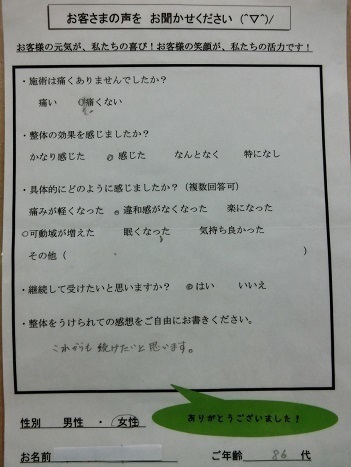 お客さまの声を お聞かせください (^▽^)/
お客様の元気が、私たちの喜び！お客様の笑顔が、私たちの活力です！
・施術は痛くありませんでしたか？
痛い ○痛くない
・整体の効果を感じましたか？
かなり感じた ○ 感じた なんとなく 特になし
・具体的にどのように感じましたか？（複数回答可）
痛みが軽くなった ○ 違和感がなくなった 楽になった
○可動域が増えた 眠くなった 気持ち良かった
その他（ ）
・継続して受けたいと思いますか？ ○ はい いいえ
・整体をうけられての感想をご自由にお書きください。
これからも続けたいと思います。
ありがとうございました！
性別 男性 ・ 女性
お名前 ご年齢 86 代